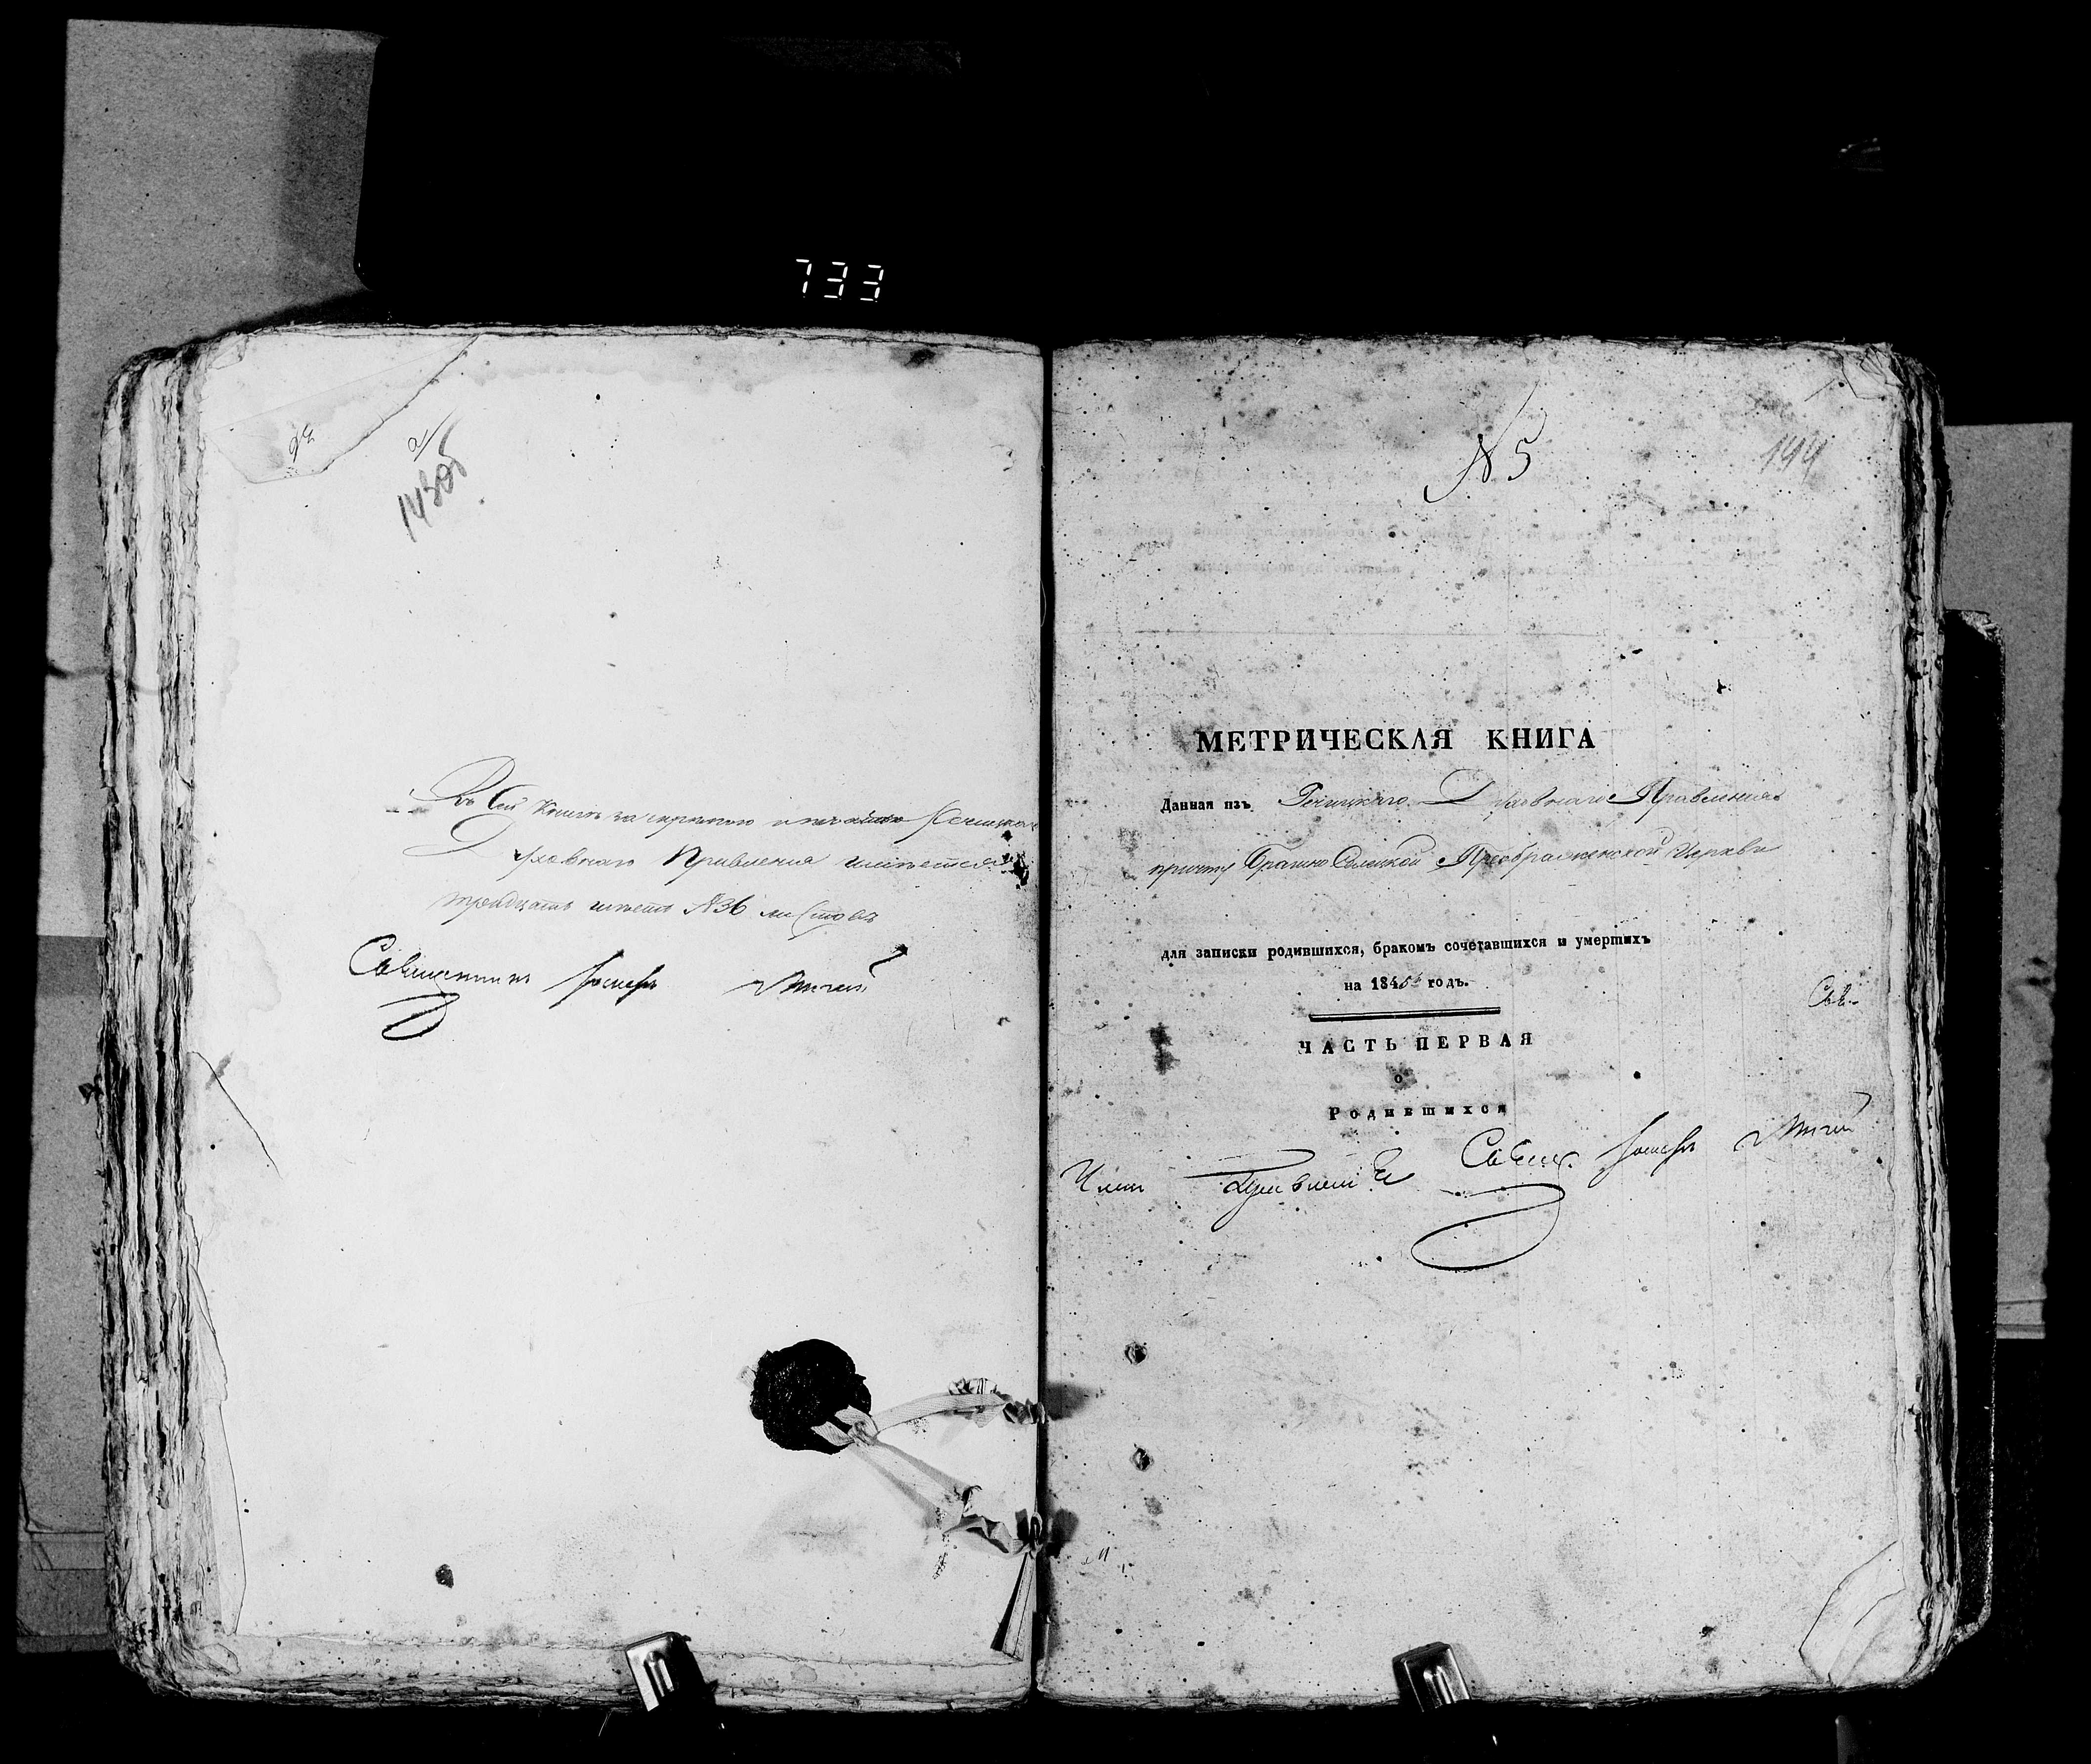 733
143об
Въ сей Книгѣ за скрепою и печатью Речицкаго
Духовнаго Правления имѣется
тридцать шесть №36 листовъ
Священникъ Іосифъ
№5
144
МЕТРИЧЕСКАЯ КНИГА
Данная изъ Речицкаго Духовнаго Правления
причту Преображенской Церкви
для записки родившихся, бракомъ сочетавшихся и умершихъ
на 1845й годъ.
Свя-
ЧАСТЬ ПЕРВАЯ
о
Родившихся
Членъ Правленія Свящ. Іосифъ